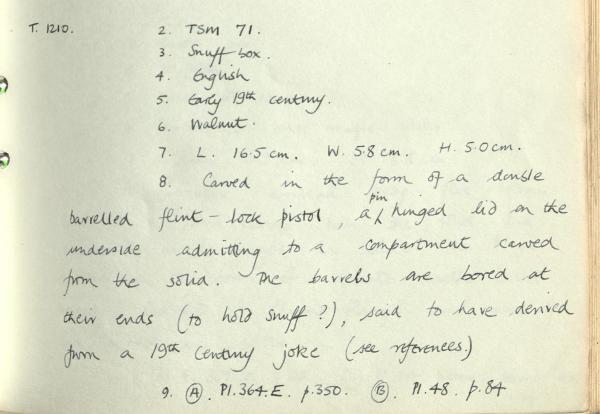 T. 1210. 2. TSM 71.
3. Snuff box.
4. English
5. Early 19th century.
6. Walnut.
7. L. 16.5 cm. W. 5.8 cm. H. 5.0 cm.
8. Carved in the form of a double
barrelled flint-lock pistol, a pin hinged lid on the
underside admitting to a compartment carved
from the solid. The barrels are bored at
their ends (to hold snuff?), said to have derived
from a 19th century joke (see references.)
9. A. Pl. 364. E. p. 350. B. Pl. 48. p. 84